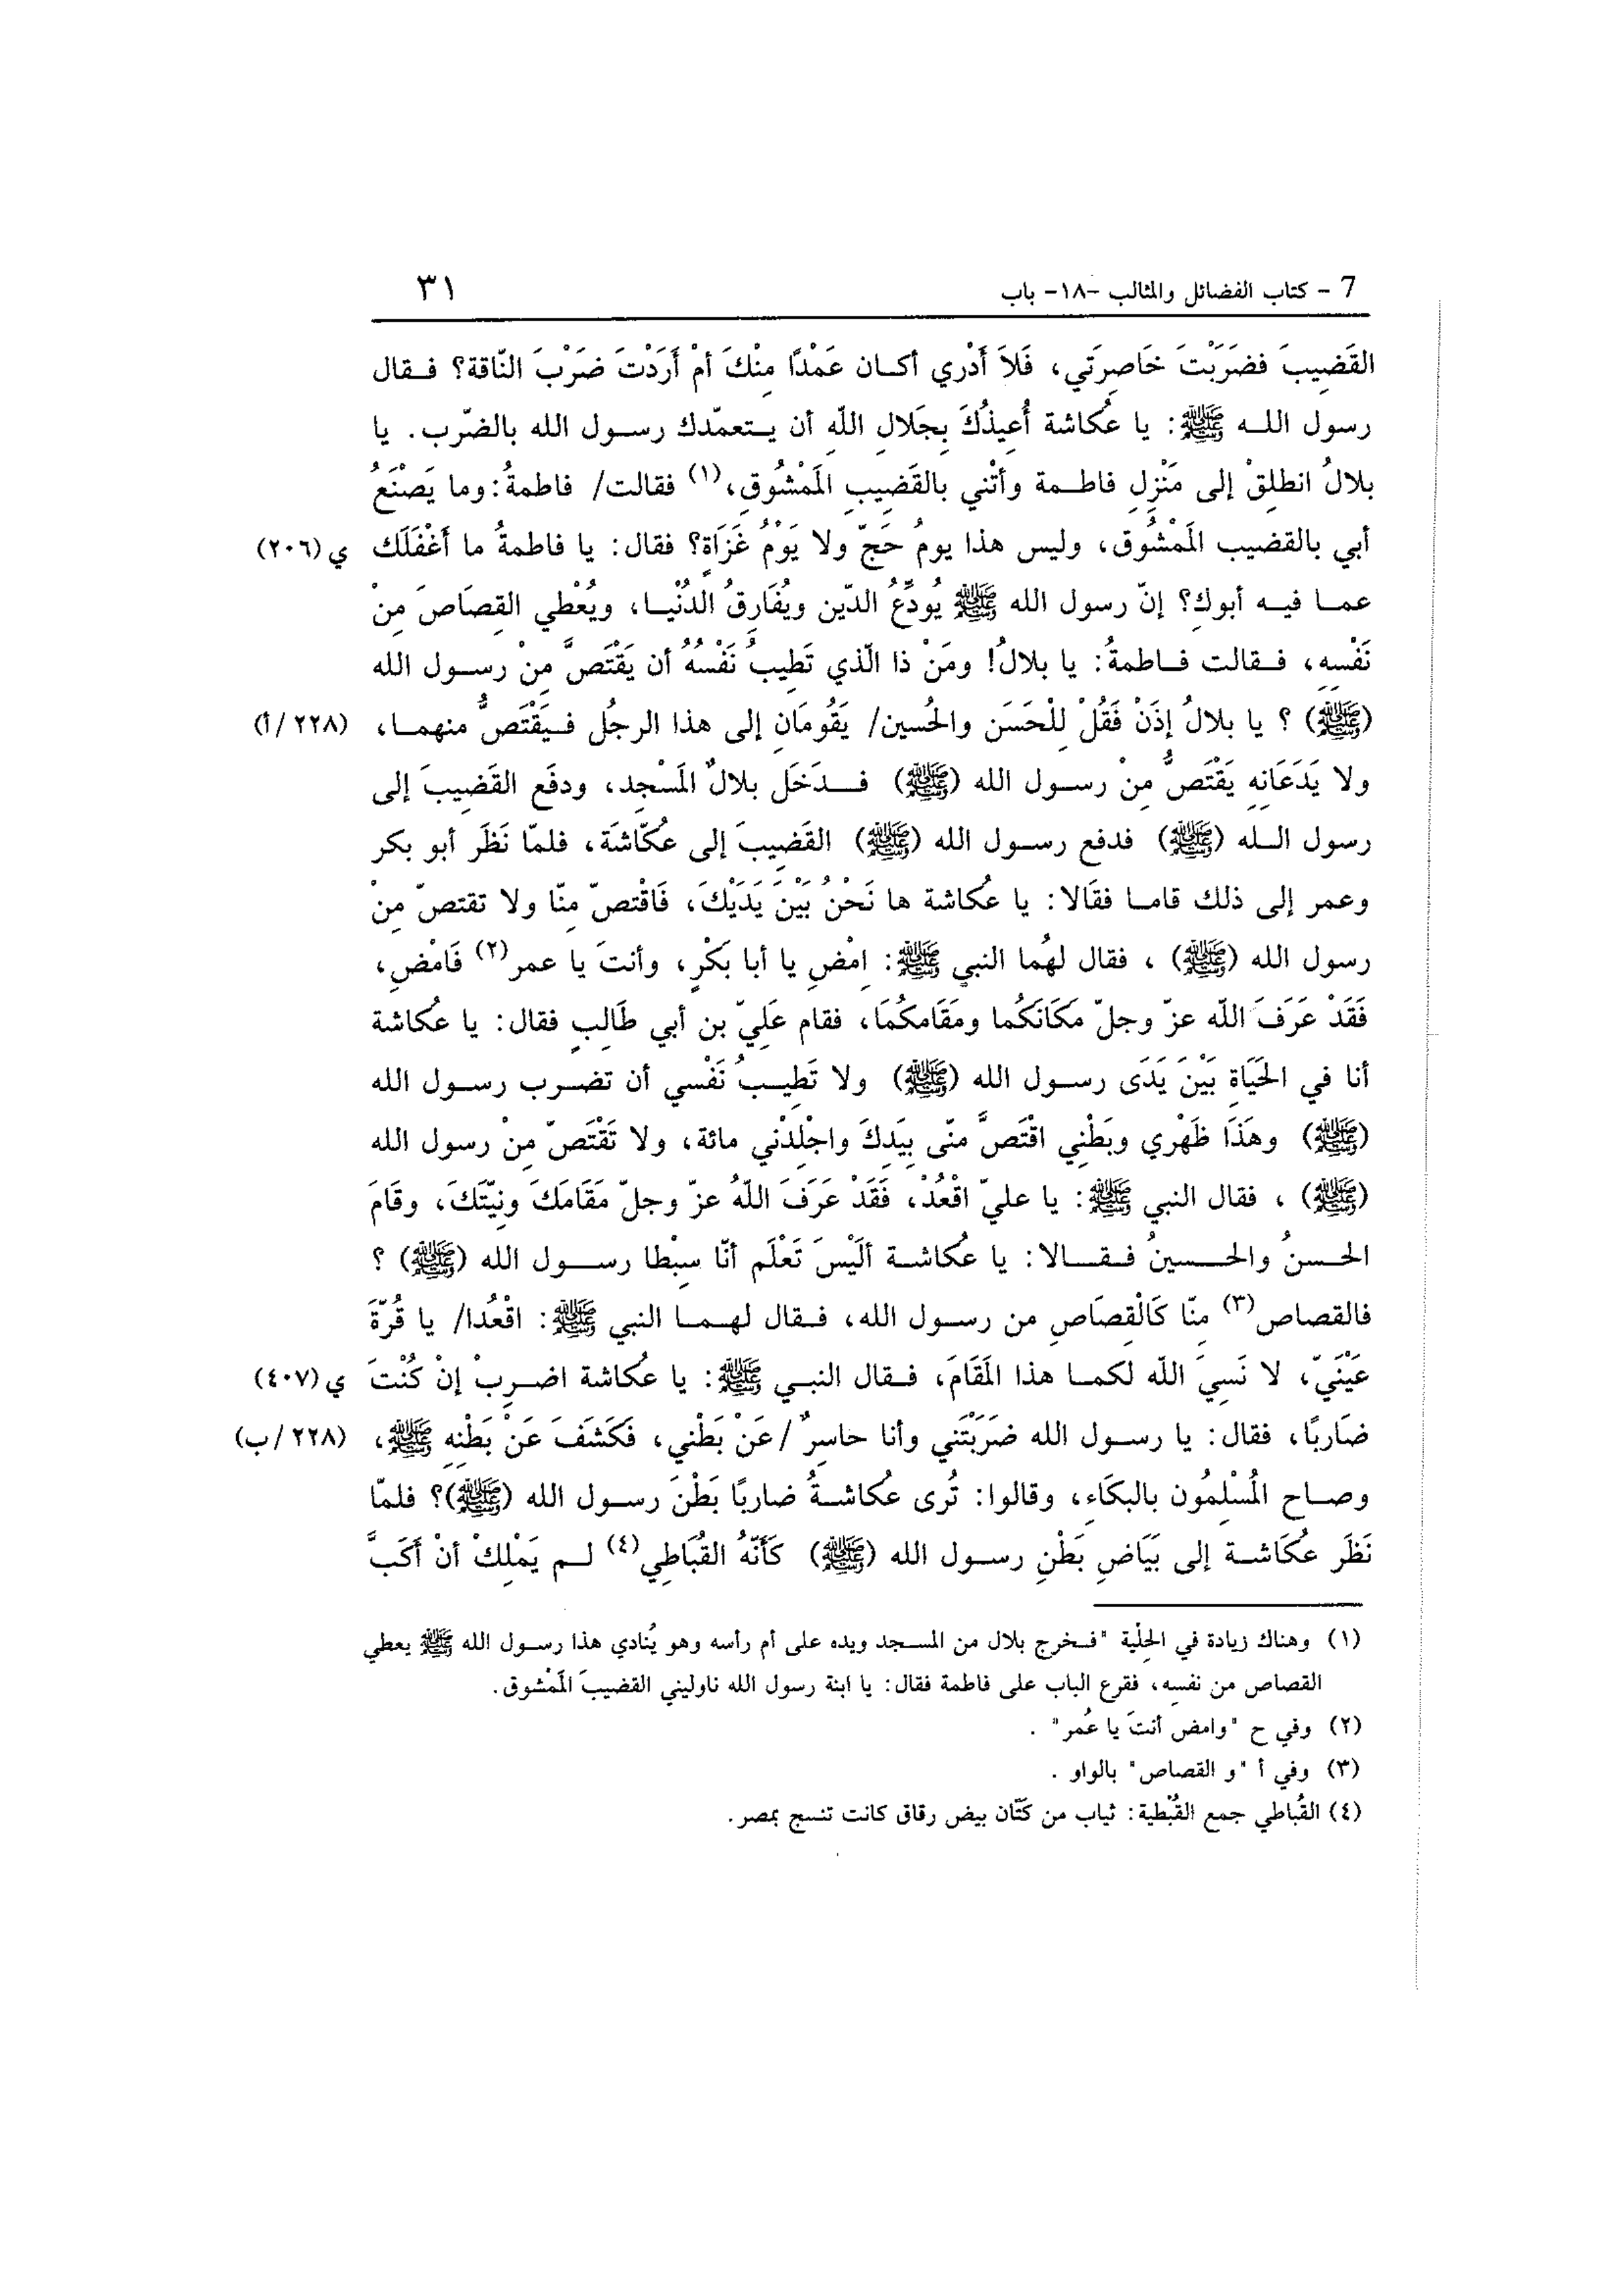 7 - كتاب الفضائل والمثالب -١٨- باب ٣١
القَضِيبَ فضَرَبْتَ خَاصِرَتي، فَلاَ أَدْري أكــان عَمْدًا مِنْكَ أمْ أَرَدْتَ ضَرْبَ النّاقة؟ فــقال
رسول اللــه ﷺ: يا عكاشة أُعِيذُكَ بِجَلالِ اللّهِ أن يــتعمّدك رســول الله بالضّرب. يا
بلالُ انطلِقْ إلى مَنْزِلِ فاطــمة وأتْني بالقَضِيبِ المَمْشُوقِ،(١) فقالت/ فاطمةُ: وما يَصْنَعُ
أبي بالقضيب المَمْشُوق، وليس هذا يومُ حَجّ ولا يَوْمُ غَزَاةٍ؟ فقال: يا فاطمةُ ما أَغْفَلَك ي (٢٠٦)
عمــا فيــه أبوكِ؟ إنّ رسول الله ﷺ يُودِّعُ الدّين ويُفَارِقُ الدُنْيــا، ويُعْطي القِصَاصَ مِنْ
نَفْسِهِ، فــقالت فــاطمةُ: يا بلالُ! ومَنْ ذا الّذي تَطِيبُ نَفْسُهُ أن يَقْتَصَّ مِنْ رســول الله
(ﷺ) ؟ يا بلالُ إذَنْ فَقُلْ لِلْحَسَن والحُسين/ يَقُومَانِ إلى هذا الرجُل فــيَقْتَصُّ منهمــا، (٢٢٨/أ)
ولا يَدَعَانِهِ يَقْتَصُّ مِنْ رســول الله (ﷺ) فــدَخَل بلالٌ المَسْجِد، ودفَع القَضِيبَ إلى
رسول الــله (ﷺ) فدفع رســول الله (ﷺ) القَضِيبَ إلى عُكّاشَة، فلمّا نَظَر أبو بكر
وعمر إلى ذلك قامــا فقَالا: يا عُكاشة ها نَحْنُ بَيْنَ يَدَيْكَ، فَاقْتصّ مِنّا ولا تقتصّ مِنْ
رسول الله (ﷺ) ، فقال لهُما النبي ﷺ: امْضِ يا أبا بَكْرٍ، وأنتَ يا عمر(٢) فَامْضِ،
فَقَدْ عَرَفَ اللّه عزّ وجلّ مَكَانَكُما ومَقَامكُمَا، فقام عَلِيّ بن أبي طَالِبٍ فقال: يا عكاشة
أنا في الحَيَاةِ بَيْنَ يَدَى رســول الله (ﷺ) ولا تَطِيــبُ نَفْسي أن تضــرب رســول الله
(ﷺ) وهَذَا ظَهْري وبَطْنِي اقْتَصَّ منّى بِيَدِكَ واجْلِدْني مائة، ولا تَقْتَصّ مِنْ رسول الله
(ﷺ) ، فقال النبي ﷺ: يا عليّ اقْعُدْ، فَقَدْ عَرَفَ اللّهُ عزّ وجلّ مَقَامَكَ ونِيّتَكَ، وقَامَ
الحــسنُ والحــــسينُ فــقــالا: يا عُكاشــة ألَيْسَ تَعْلَم أنّا سِبْطا رســــول الله (ﷺ) ؟
فالقصاص(٣) مِنّا كَالْقِصَاصِ من رســول الله، فــقال لهــمــا النبي ﷺ: اقْعُدا/ يا قُرّةَ
عَيْنَيّ، لا نَسِيَ اللّه لكمــا هذا المَقَامَ، فــقال النبــي ﷺ: يا عُكاشة اضــرِبْ إنْ كُنْتَ ي (٤٠٧)
ضَاربًا، فقال: يا رســول الله ضَرَبْتَني وأنا حاسِرٌ /عَنْ بَطْني، فَكَشَفَ عَنْ بَطْنِهِ ﷺ، (٢٢٨/ب)
وصــاح المُسْلِمُون بالبكَاء، وقالوا: تُرى عُكاشــةُ ضاربًا بَطْنَ رســول الله (ﷺ)؟ فلمّا
نَظَر عُكَاشــة إلى بَيَاضِ بَطْنِ رســول الله (ﷺ) كَأَنّهُ القُبَاطِي(٤) لــم يَمْلِكْ أنْ أكَبَّ
(١) وهناك زيادة في الحِلْية "فــخرج بلال من المســجد ويده على أم رأسه وهو يُنادي هذا رســول الله ﷺ يعطي
القصاص من نفسِه، فقرع الباب على فاطمة فقال: يا ابنة رسول الله ناوليني القضيبَ المَمْشوق.
(٢) وفي ح "وامض أنتَ يا عُمر" .
(٣) وفي أ "و القصاص" بالواو .
(٤) القُباطي جمع القُبْطية: ثياب من كَتّان بيض رقاق كانت تنسج بمصر.